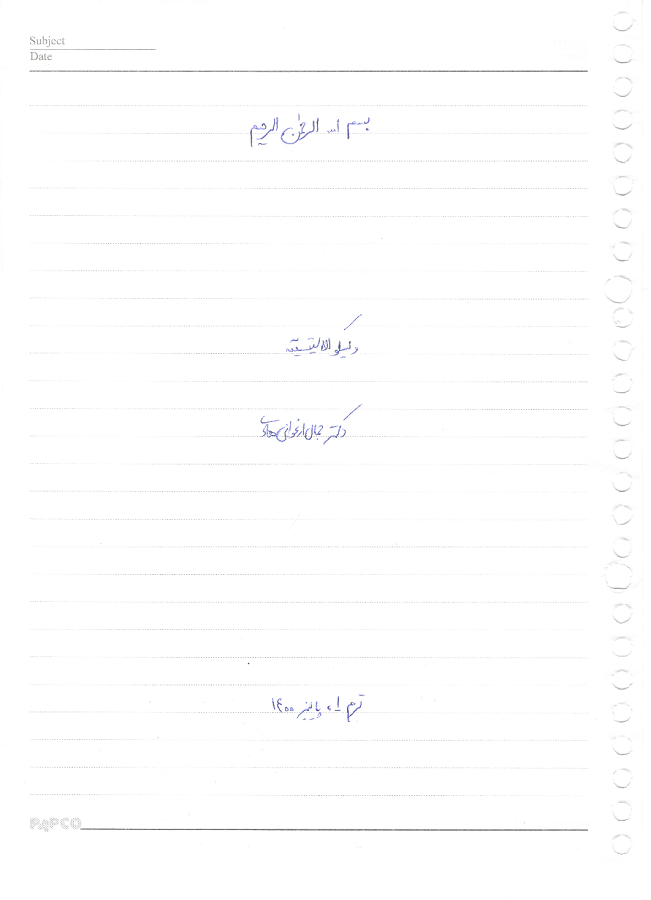 Subject
Date
بسم الله الرحمن الرحیم
دکتر جمال ارغوانی هادی
ترم ۱، پاییز ۱۴۰۰
PAPCO